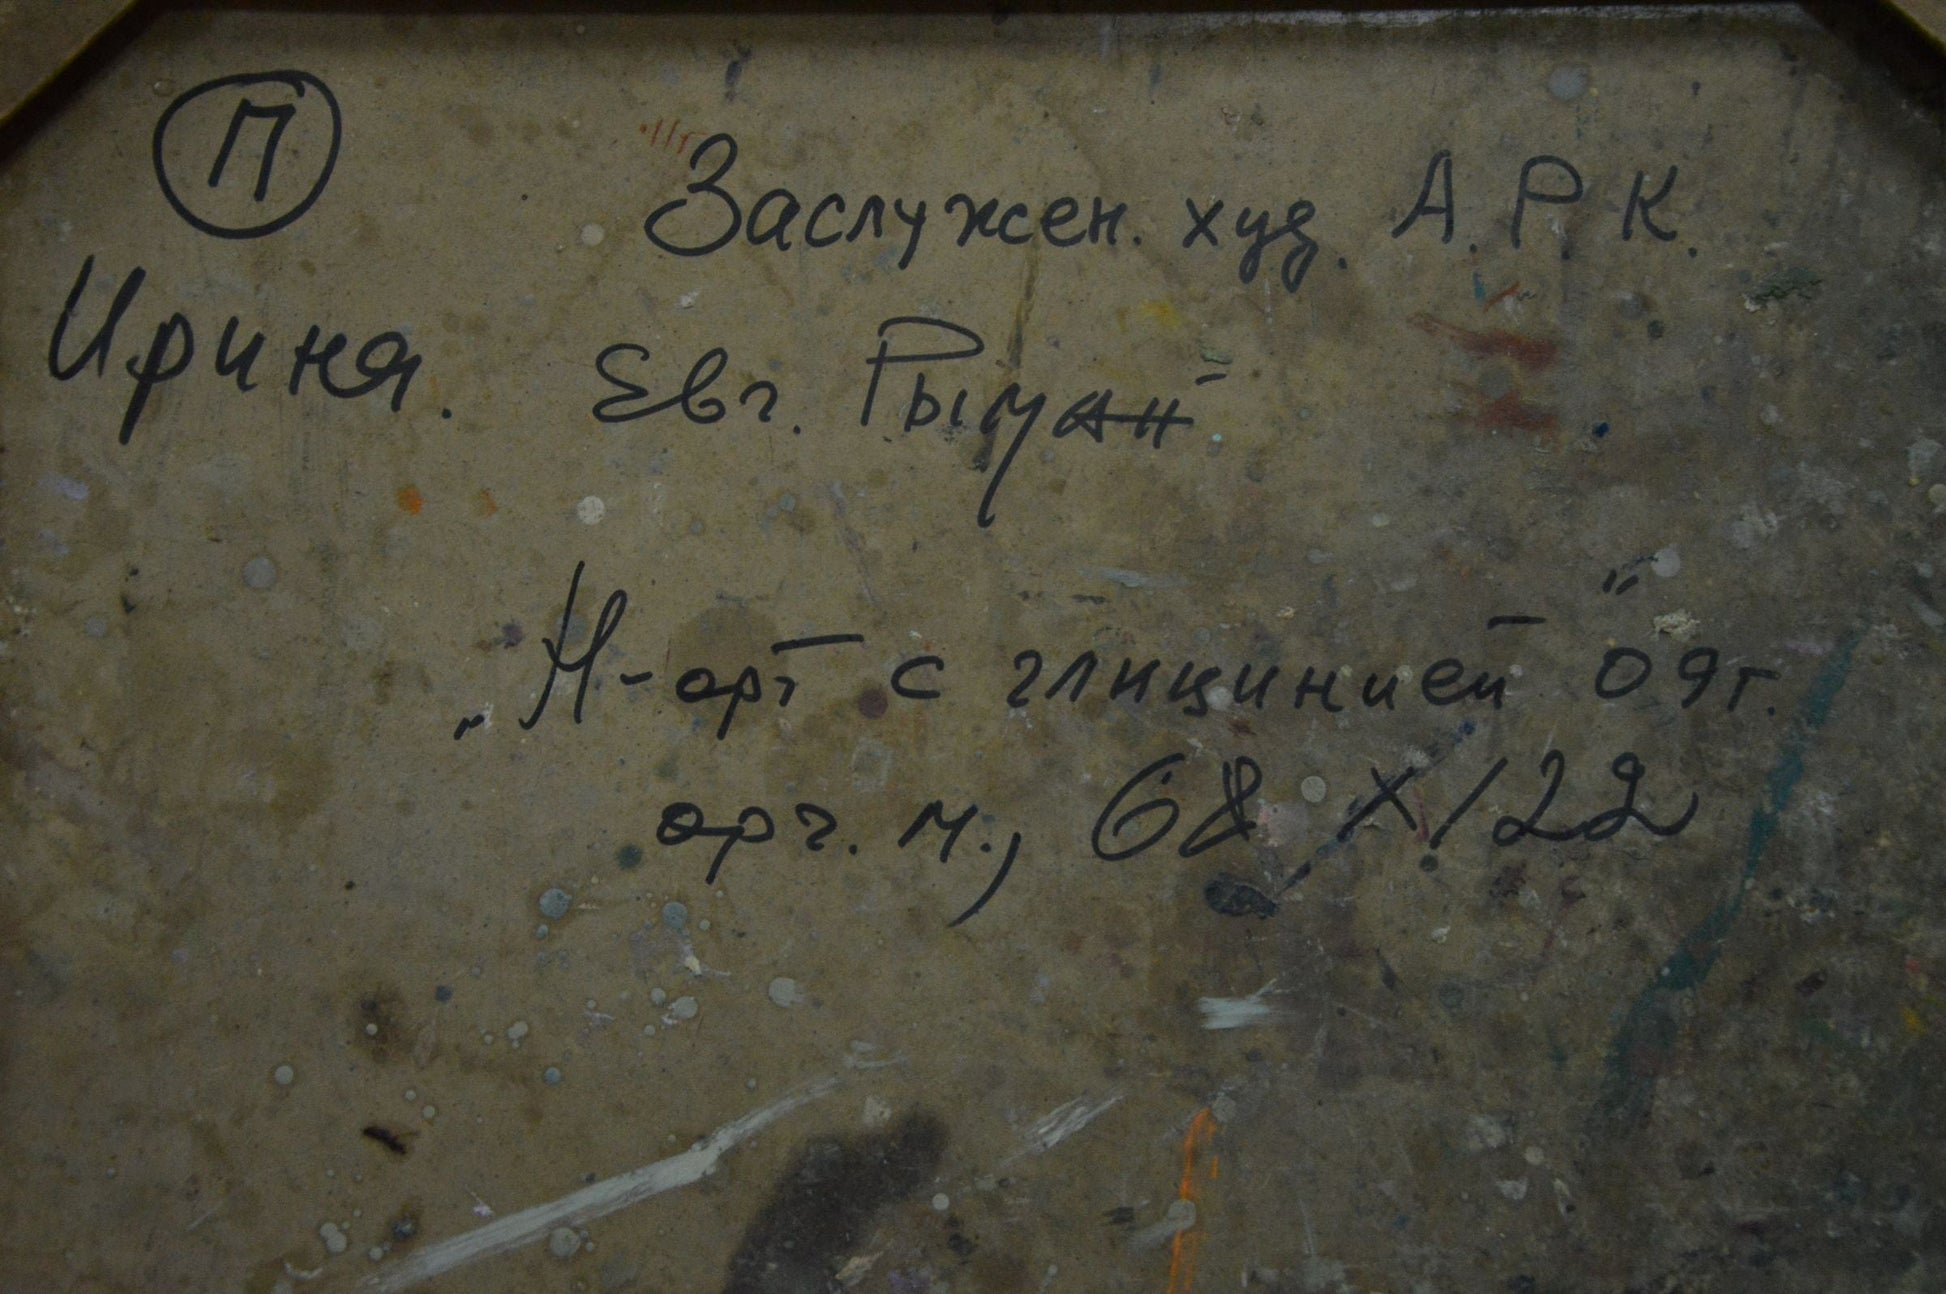 П
Заслужен. худ. А.Р.К.
Ирина. Евг. Рыман
„Н-орт с глицинией" 09г.
орг. м., 68 х 122